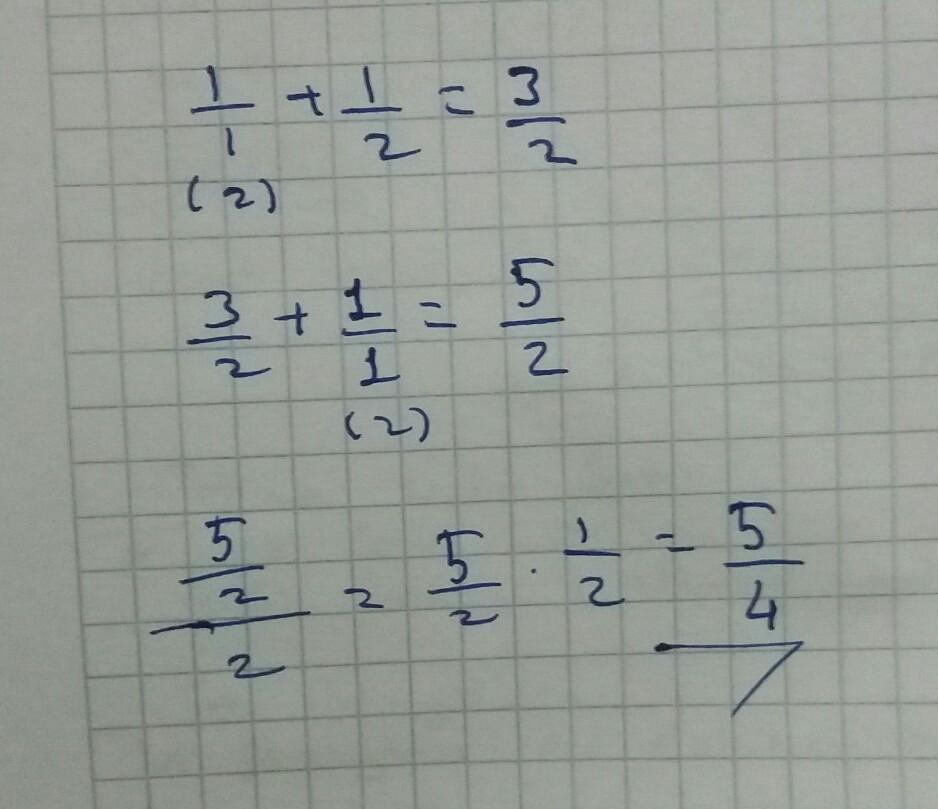 1/1 + 1/2 = 3/2
(2)
3/2 + 1/1 = 5/2
(2)
5/2/2 = 5/2 · 1/2 = 5/4